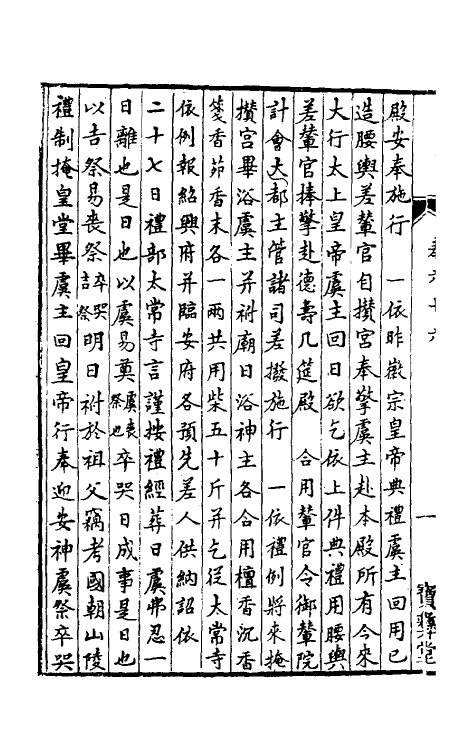 殿安奉施行　一依昨徽宗皇帝典禮虞主回用已
造腰輿差輦官自攢宮奉擎虞主赴本殿所有今來
大行太上皇帝虞主回日欲乞依上件典禮用腰輿
差輦官捧擎赴德壽几筵殿　合用輦官令御輦院
計會大都主管諸司差撥施行　一依禮例將來掩
攢宮畢浴虞主并祔廟日浴神主各合用檀香沉香
箋香茆香末各一兩共用柴五十斤并乞從太常寺
依例報紹興府并臨安府各預先差人供納詔依
二十七日禮部太常寺言謹按禮經葬日虞弗忍一
日離也是日也以虞易奠虞喪祭也卒哭日成事是日也
以吉祭易喪祭卒哭吉祭明日祔於祖父竊考國朝山陵
禮制掩皇堂畢虞主回皇帝行奉迎安神虞祭卒哭
卷六十六
一
寶彝堂